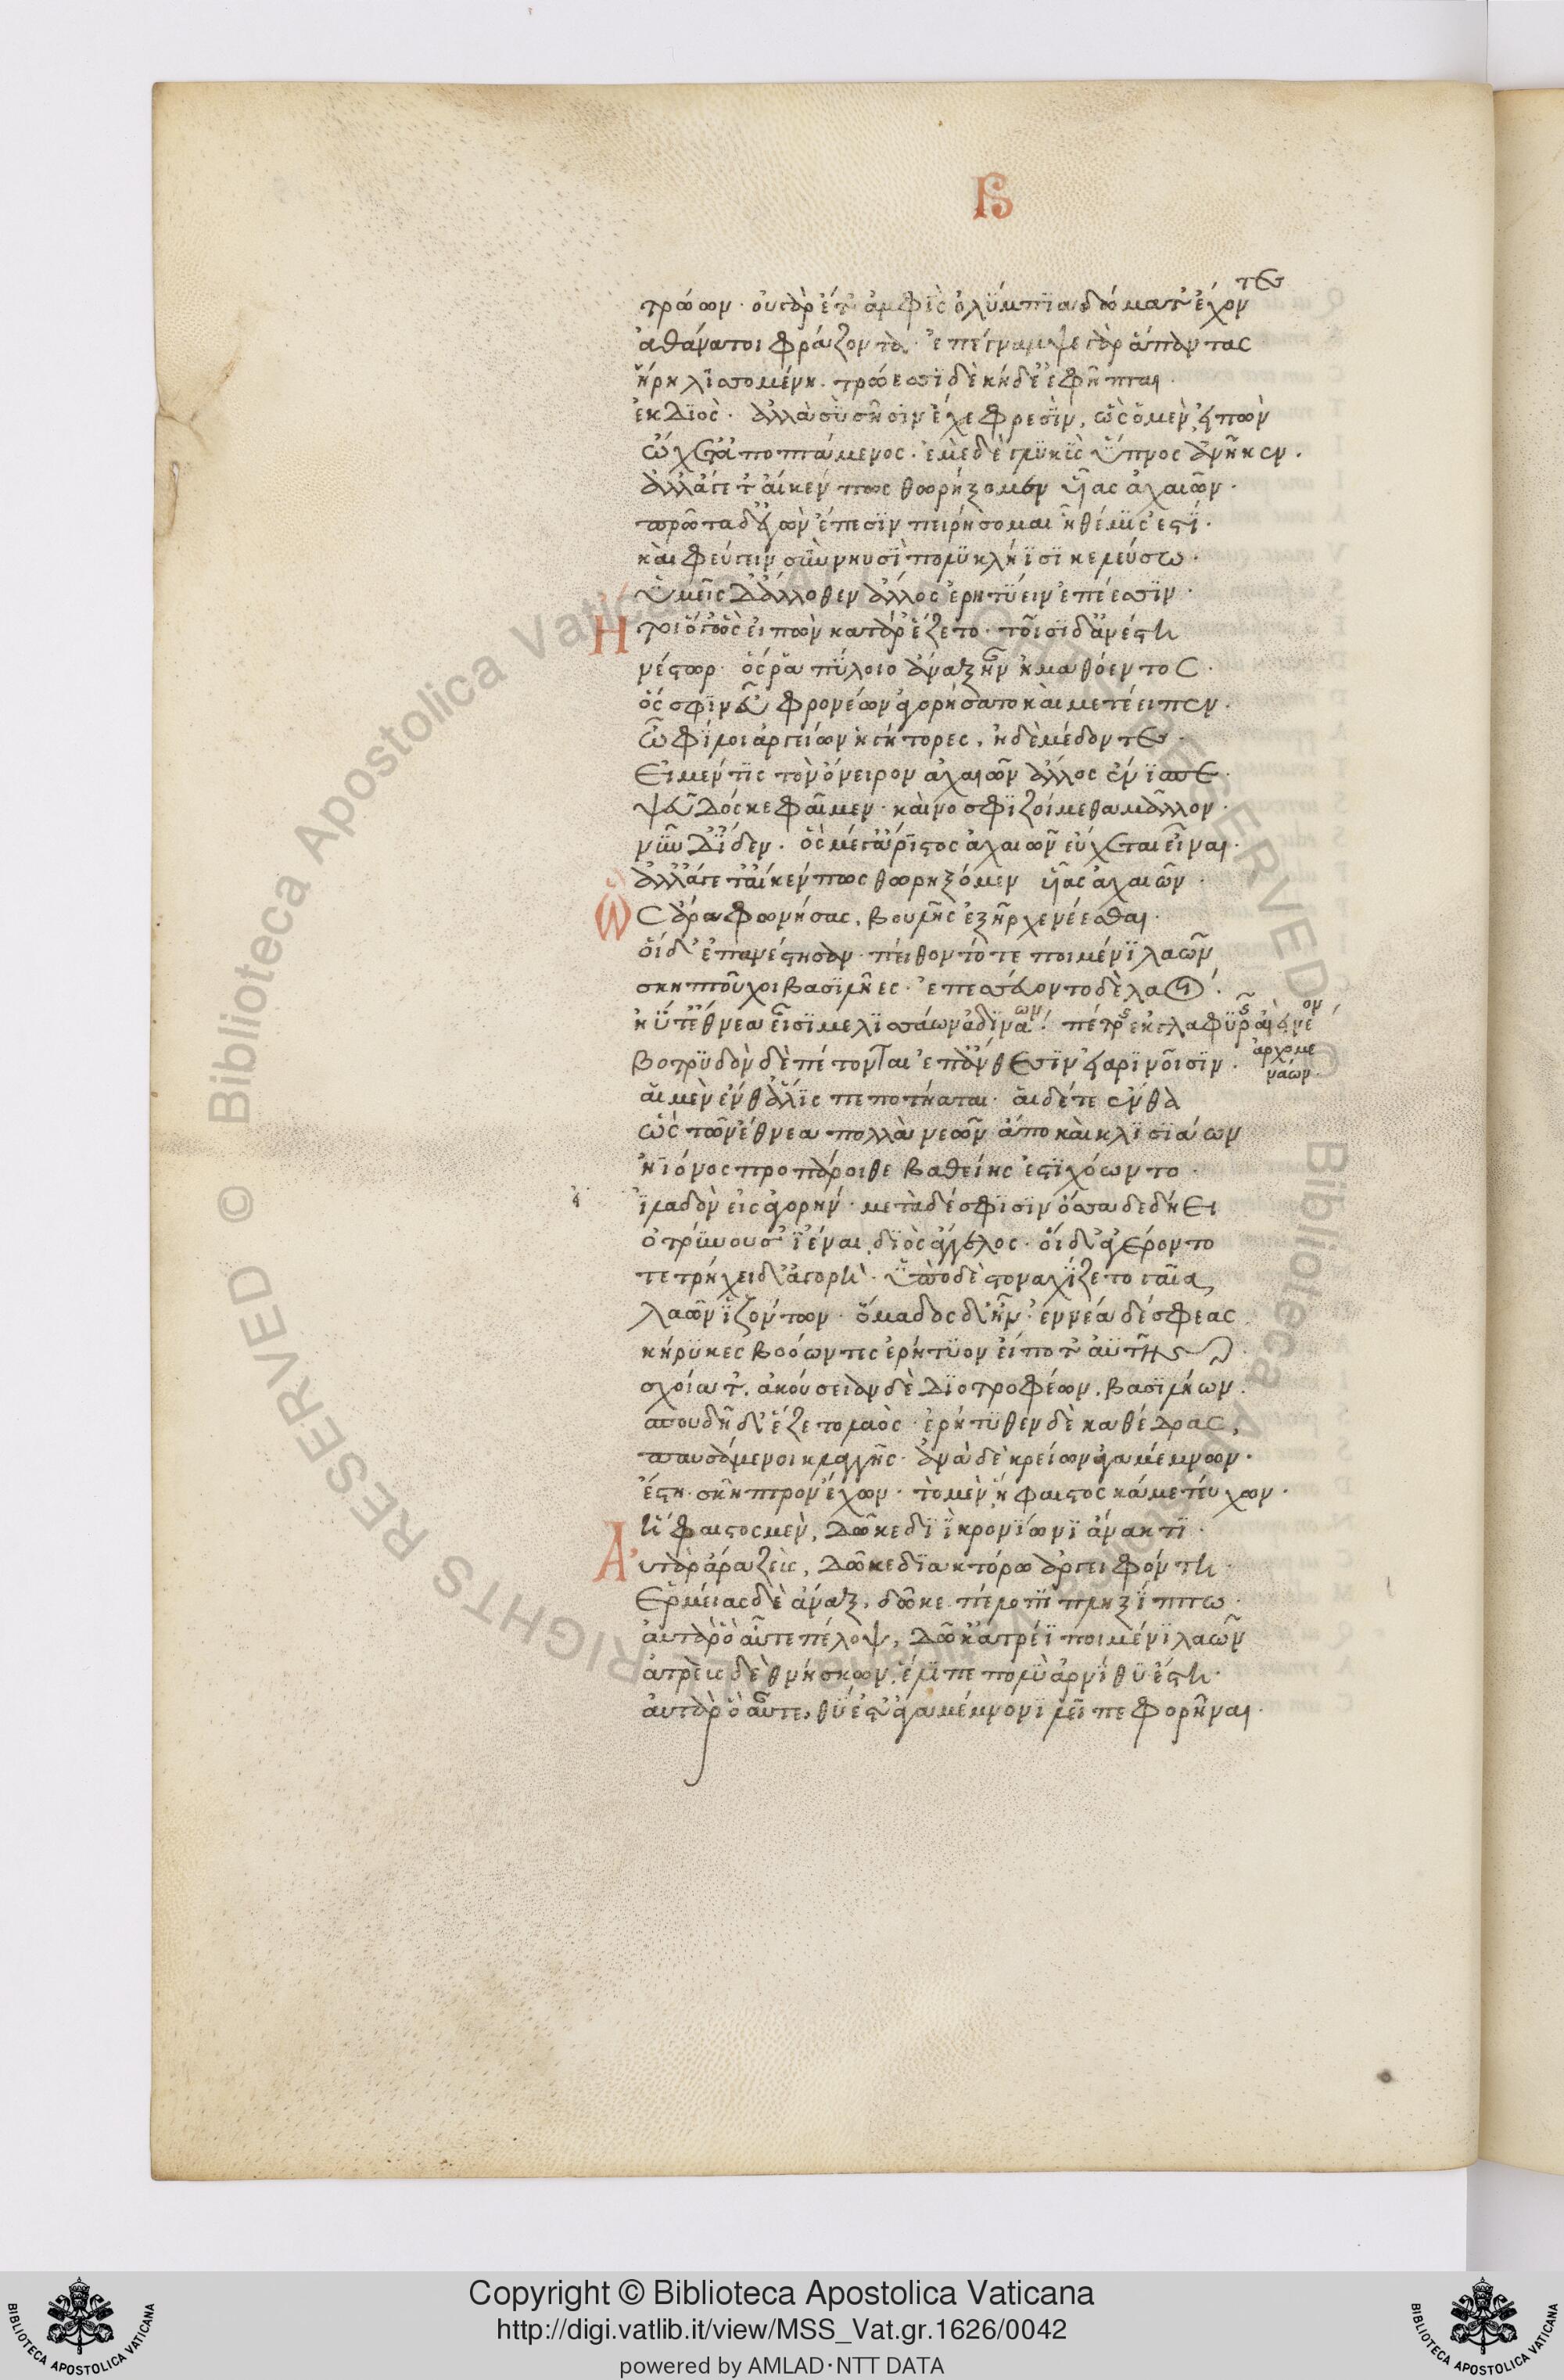 Β
τρώων· οὐ γὰρ ἔτ' ἀμφὶς ὀλύμπια δώματ' ἔχοντες
ἀθάνατοι φράζονται· ἐπέγναμψε γὰρ ἅπαντας
ἥρη λισσομένη· τρώεσσι δὲ κήδε' ἐφῆπται·
ἐκ Διός· ἀλλὰ σὺ σῇσιν ἔχε φρεσίν, ὣς ὁ μὲν εἰπὼν
ᾤχετ' ἀποπτάμενος· ἐμὲ δὲ γλυκὺς ὕπνος ἀνῆκεν·
ἀλλ' ἄγετ' αἴκεν πως θωρήξομεν υἷας ἀχαιῶν·
πρῶτα δ' ἐγὼν ἔπεσιν πειρήσομαι ἣ θέμις ἐστί·
καὶ φεύγειν σὺν νηυσὶ πολυκλήϊσι κελεύσω·
Ὑμεῖς δ' ἄλλοθεν ἄλλος ἐρητύειν ἐπέεσσιν·
Ἤτοι ὅγ' ὣς εἰπὼν κατ' ἄρ' ἕζετο· τοῖσι δ' ἀνέστη
νέστωρ· ὅς ῥα πύλοιο ἄναξ ἦν ἠμαθόεντος·
ὅ σφιν ἐυφρονέων ἀγορήσατο καὶ μετέειπεν·
ὦ φίλοι ἀργείων ἡγήτορες, ἠδὲ μέδοντες·
Εἰ μέν τις τὸν ὄνειρον ἀχαιῶν ἄλλος ἔνισπε·
ψεῦδός κε φαῖμεν· καὶ νοσφιζοίμεθα μᾶλλον·
νῦν δ' ἴδεν· ὃς μέγ' ἄριστος ἀχαιῶν εὔχεται εἶναι·
ἀλλ' ἄγετ' αἴκέν πως θωρήξομεν υἷας ἀχαιῶν·
Ὣς ἄρα φωνήσας, βουλῆς ἐξῆρχε νέεσθαι·
οἱ δ' ἐπανέστησαν· πείθοντό τε ποιμένι λαῶν
σκηπτοῦχοι βασιλῆες· ἐπεσσεύοντο δὲ λαοί·
ἠΰτ' ἔθνεα εἶσι μελισσάων ἀδινάων· πέτρης ἐκ γλαφυρῆς αἰεὶ νέον
ἐρχομενάων·
βοτρυδὸν δὲ πέτονται ἐπ' ἄνθεσιν εἰαρινοῖσιν·
αἱ μὲν ἔνθ' ἅλις πεποτήαται· αἱ δέ τε ἔνθα
ὣς τῶν ἔθνεα πολλὰ νεῶν ἄπο καὶ κλισιάων
ἠϊόνος προπάροιθε βαθείης ἐστιχόωντο·
ἰλαδὸν εἰς ἀγορήν· μετὰ δέ σφισιν ὄσσα δεδήει
ὀτρύνουσ' ἰέναι, διὸς ἄγγελος· οἱ δ' ἀγέροντο
τετρήχει δ' ἀγορή· ὑπὸ δὲ στοναχίζετο γαῖα,
λαῶν ἱζόντων· ὅμαδος δ' ἦν· ἐννέα δέ σφεας
κήρυκες βοόωντες ἐρήτυον εἴποτ' ἀϋτῆς
σχοίατ', ἀκούσειαν δὲ Διοτροφέων, βασιλήων·
σπουδῇ δ' ἕζετο λαός· ἐρήτυθεν δὲ καθέδρας,
παυσάμενοι κλαγγῆς· ἀνὰ δὲ κρείων ἀγαμέμνων·
ἔστη· σκῆπτρον ἔχων· τὸ μὲν ἥφαιστος κάμε τεύχων·
ἥφαιστος μὲν, δῶκε διῒ κρονίωνι ἄνακτι·
Αὐτὰρ ἄρα ζεύς, δῶκε διακτόρῳ ἀργειφόντῃ·
Ἑρμείας δὲ ἄναξ, δῶκε πέλοπι πληξίππῳ·
αὐτὰρ ὁ αὖτε πέλοψ, δῶκ' ἀτρέϊ ποιμένι λαῶν
ἀτρεὺς δὲ θνήσκων, ἔλιπε πολύαρνι θυέστῃ·
αὐτὰρ ὁ αὖτε, θυέστ' ἀγαμέμνονι λεῖπε φορῆναι·
Copyright © Biblioteca Apostolica Vaticana
http://digi.vatlib.it/view/MSS_Vat.gr.1626/0042
powered by AMLAD·NTT DATA
BIBLIOTECA APOSTOLICA VATICANA
BIBLIOTECA APOSTOLICA VATICANA
© Biblioteca Apostolica Vaticana ALL RIGHTS RESERVED